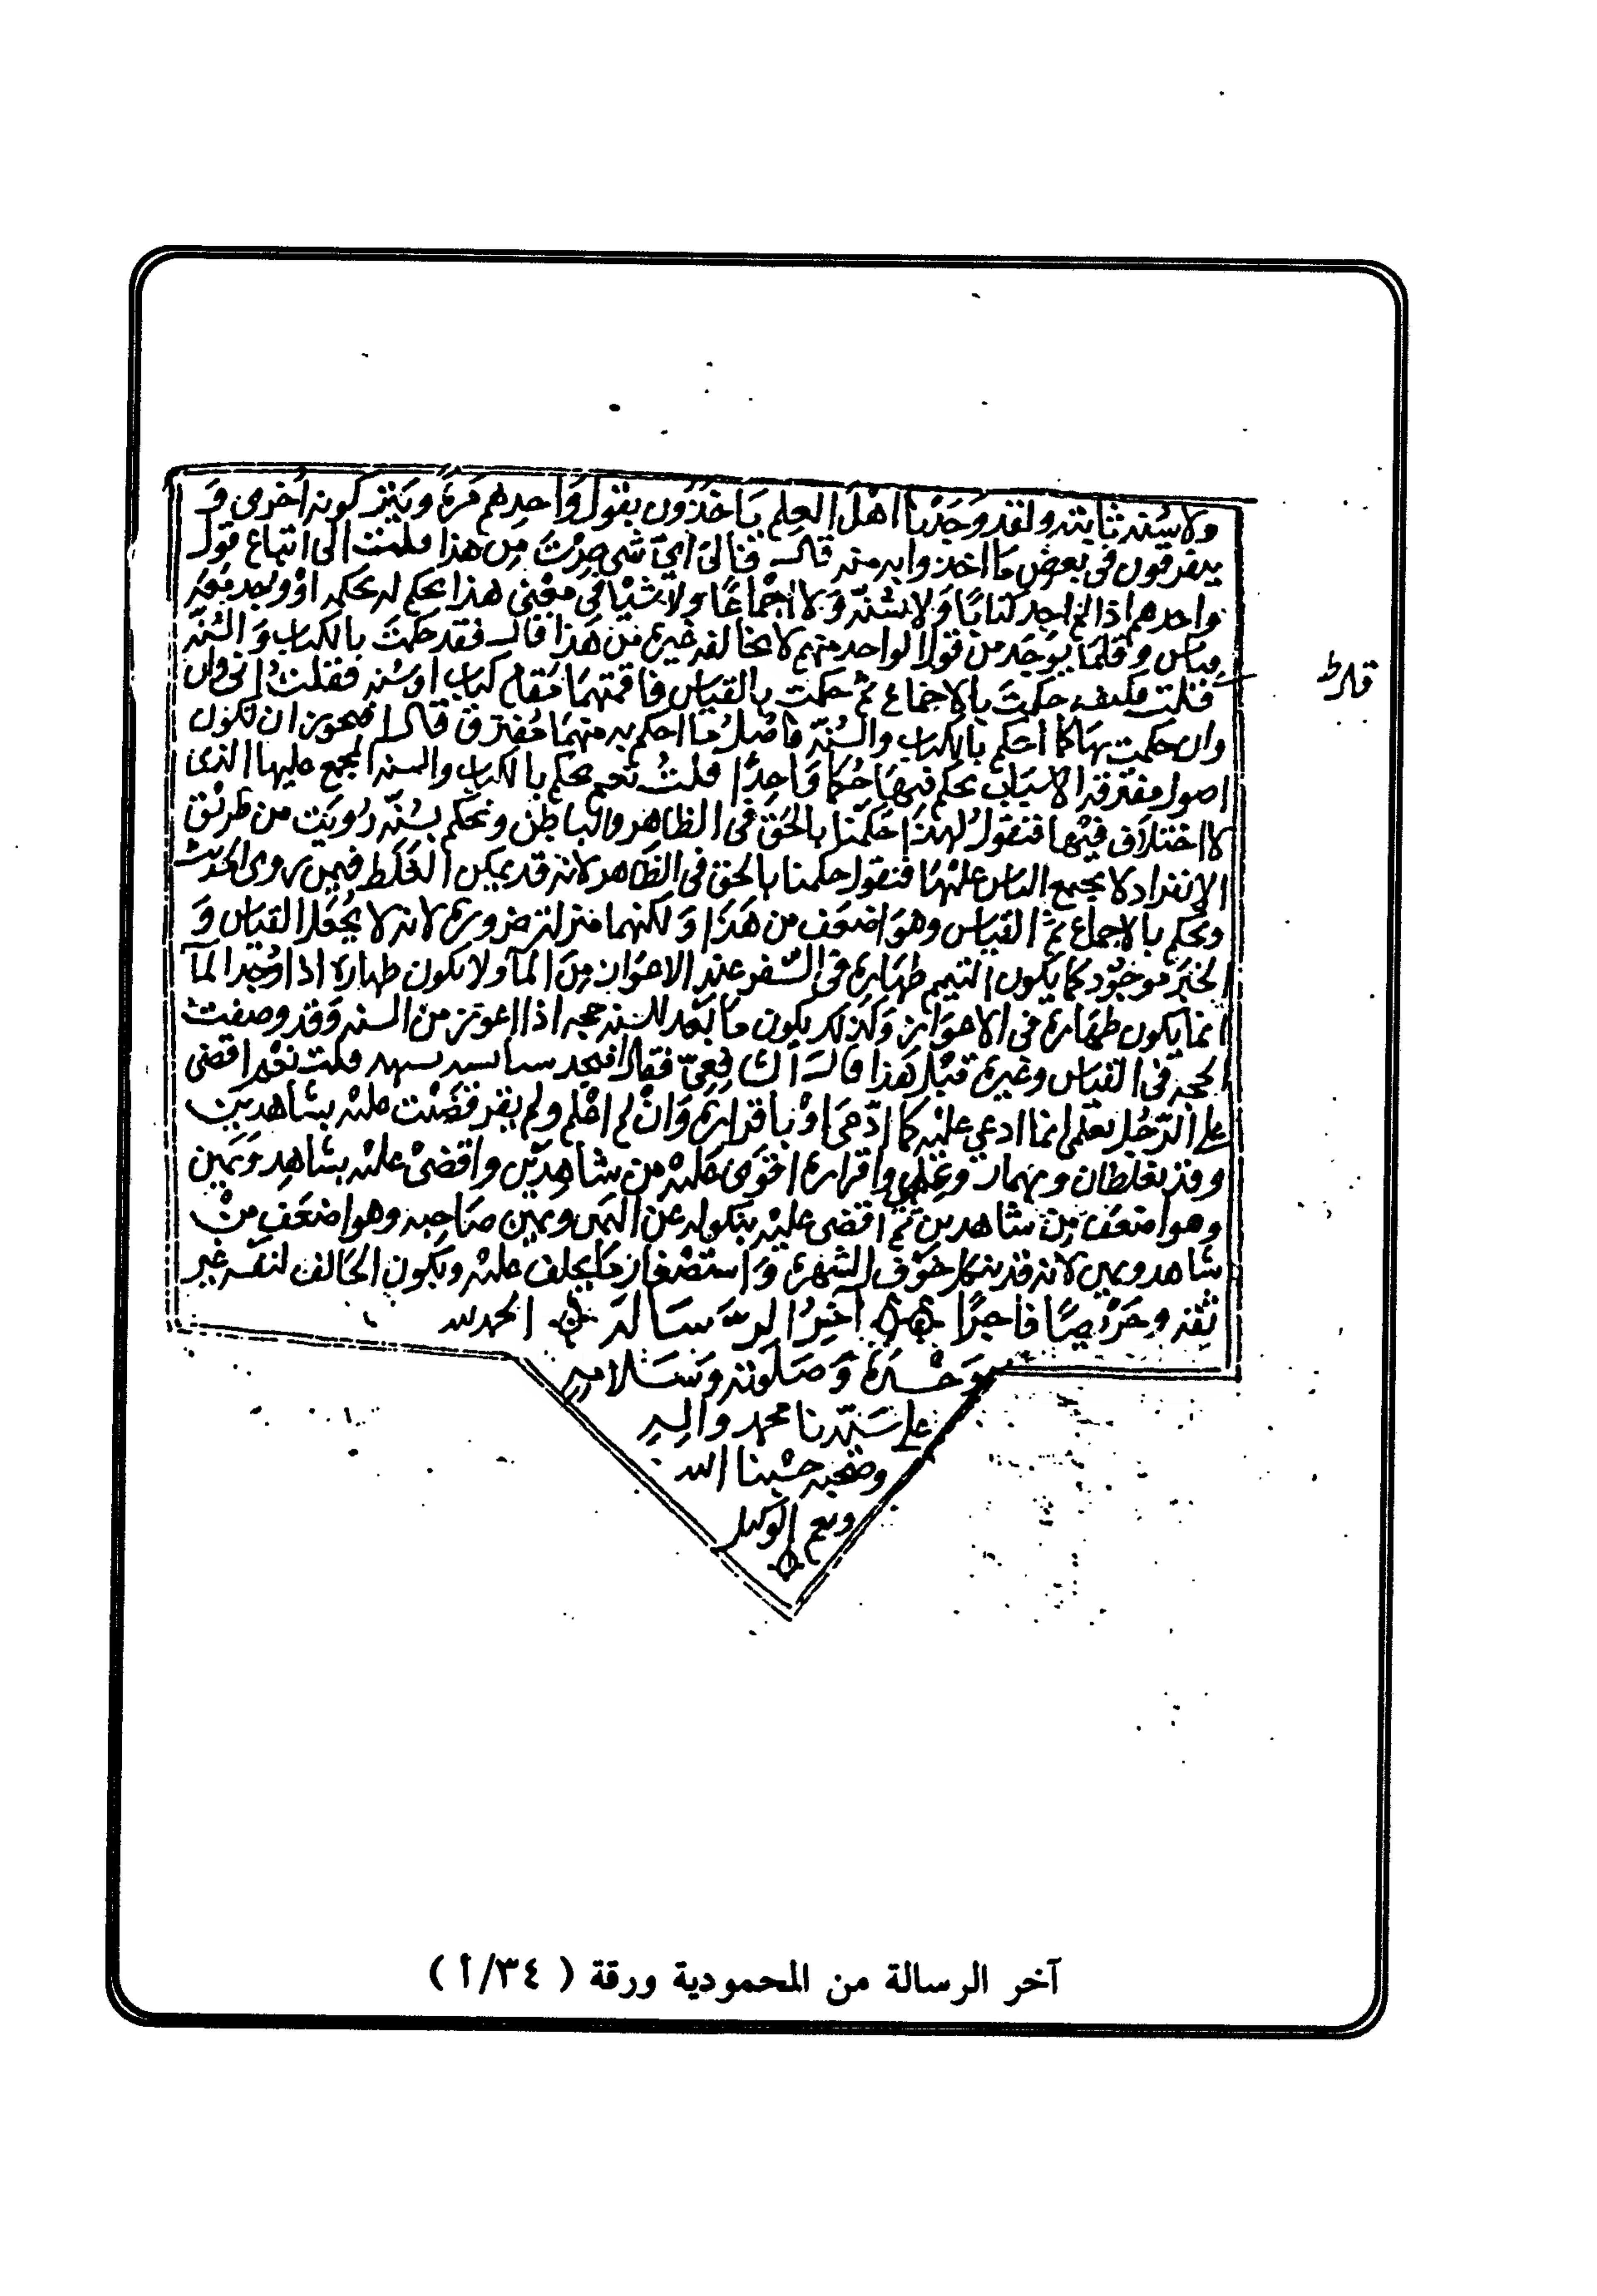 ولا سُنة ثابتة ولقد وَجَدْنا اهْلَ العِلم يَاخُذُونَ بقَوْل وَاحِدِهم مَرةً ويَتْركونه اُخرى وَ
يتفرقون فى بعض مَا اخذوا به منهم قال فَالىَ اىّ شى صِرْتَ مِن هذا قلت الى اتباع قول
واحدهم اذا لم اجد كتابًا وَلا سُنةً وَلا اجْمَاعًا ولا شيْا فى مَعْنى هذا يحكم له بحكمه اوْ وجد مَعَه
قياس وقلما يوَجَد من قول الواحد منهم لا يخالفه غيره مِن هَذا قال فقد حكمتَ بالكتاب وَ السُنّة
قلت فكيف حكمتَ بالاجماع ثم حكمت بالقياس فاقمتهمَا مَقام كتاب او سُنة فقلتُ انى وان
وان حكمت بهَا كما احكم بالكتاب والسُنّة فاصْلُ مَا احكم به منهمَا مُفترق قال افيجوز ان تكون
اصول مفترقة الاسْبَاب يحكم فيهَا حُكما وَاحِدًا قلتُ نَعم يحكم بالكتاب والسنة المجمع عليها الذى
لا اختلاف فيْها فنقولُ لهذا حَكمْنا بالحَق فى الظاهر والبَاطِن ونحكم بسُنّة رُويَت من طريْق
الانفراد لا يجمع الناس عليْهَا فنقول حكمنا بالحق فى الظاهر لانه قد يمكن الغَلط فيمن روى الحديث
ونحكم بالاجماع ثم القيَاس وهوَ اضعَف من هَذا وَلكنهما منزلة ضرورة لانه لا يُحَل القيَاس وَ
الخبَر مَوجُود كما يَكون التيمم طَهَارة فى السّفر عند الاعوَاز مِنَ المآ ولا يكون طهارة اذا وُجِد المآ
انما يكون طَهَارة فى الاعوَاز وَكذلك يكون مَا بَعْد السنة حجة اذا اعوز من السنة وَقد وصفت
الحجة فى القيَاس وغيره قبْل هَذا قال فقال افتجد قلت نعْم اقضى
على الرّجُل بعلمى انما ادعى عليْه كما ادّعَى اوْ باقراره وَانْ لم اعْلم ولم يقر قضيْت عليْه بشاهديْن
وقد يَغلطان ويهمان وعِلمي واقراره اقوَى عَليْه من شاهِديْن واقضى عليْه بشاهِد ويَمين
وهو اضعَف مِن شاهدين ثم اقضى عليْه بنكوله عن اليمين ويمين صَاحِبه وهوا ضعَف مِنْ
شاهد ويمين لانه قد ينكل خوْف الشهرة وَاستصْغار مَا يحلف عليْه ويَكون الحَالف لنفسه غير
ثقة وحَرْيصًا فاجرًا آخِرُ الرّسَالة الحمد لله
وَحْدَهُ وَصَلوته وسَلامه
على سَيّدنا محمد واله
وصَحبه حسْبنا الله
ونعم الوكيل
قال
آخر الرسالة من المحمودية ورقة ( ٣٤/أ )